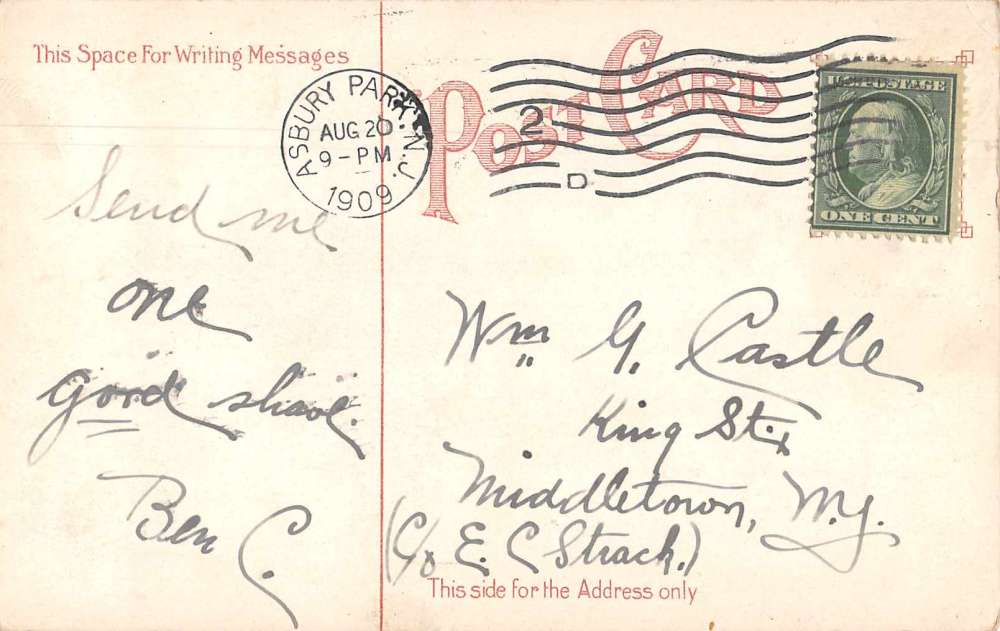 This Space For Writing Messages
POST CARD
ASBURY PARK, N.J.
AUG 20
9-PM
1909
2
D
U.S. POSTAGE
ONE CENT
Send me
one
good shave.
Ben C.
Wm. G. Castle
King St.,
Middletown, N.Y.
(C/o E. C Strack.)
This side for the Address only